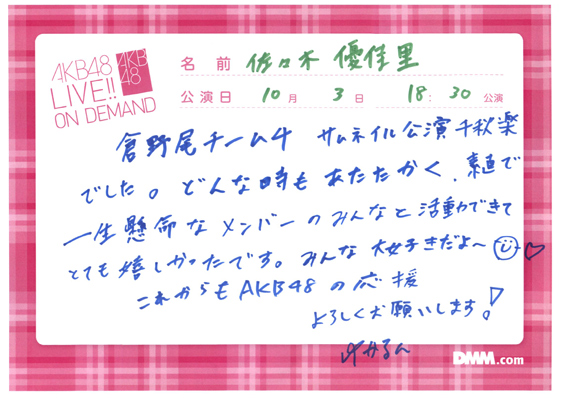 AKB48
LIVE!!
ON DEMAND
AKB
48
名前 佐々木 優佳里
公演日 10月 3日 18:30公演
倉野尾チーム4 サムネイル公演千秋楽
でした。どんな時もあたたかく、素直で
一生懸命なメンバーのみんなと活動できて
とても嬉しかったです。みんな大好きだよ〜
これからもAKB48の応援
よろしくお願いします!
DMM.com